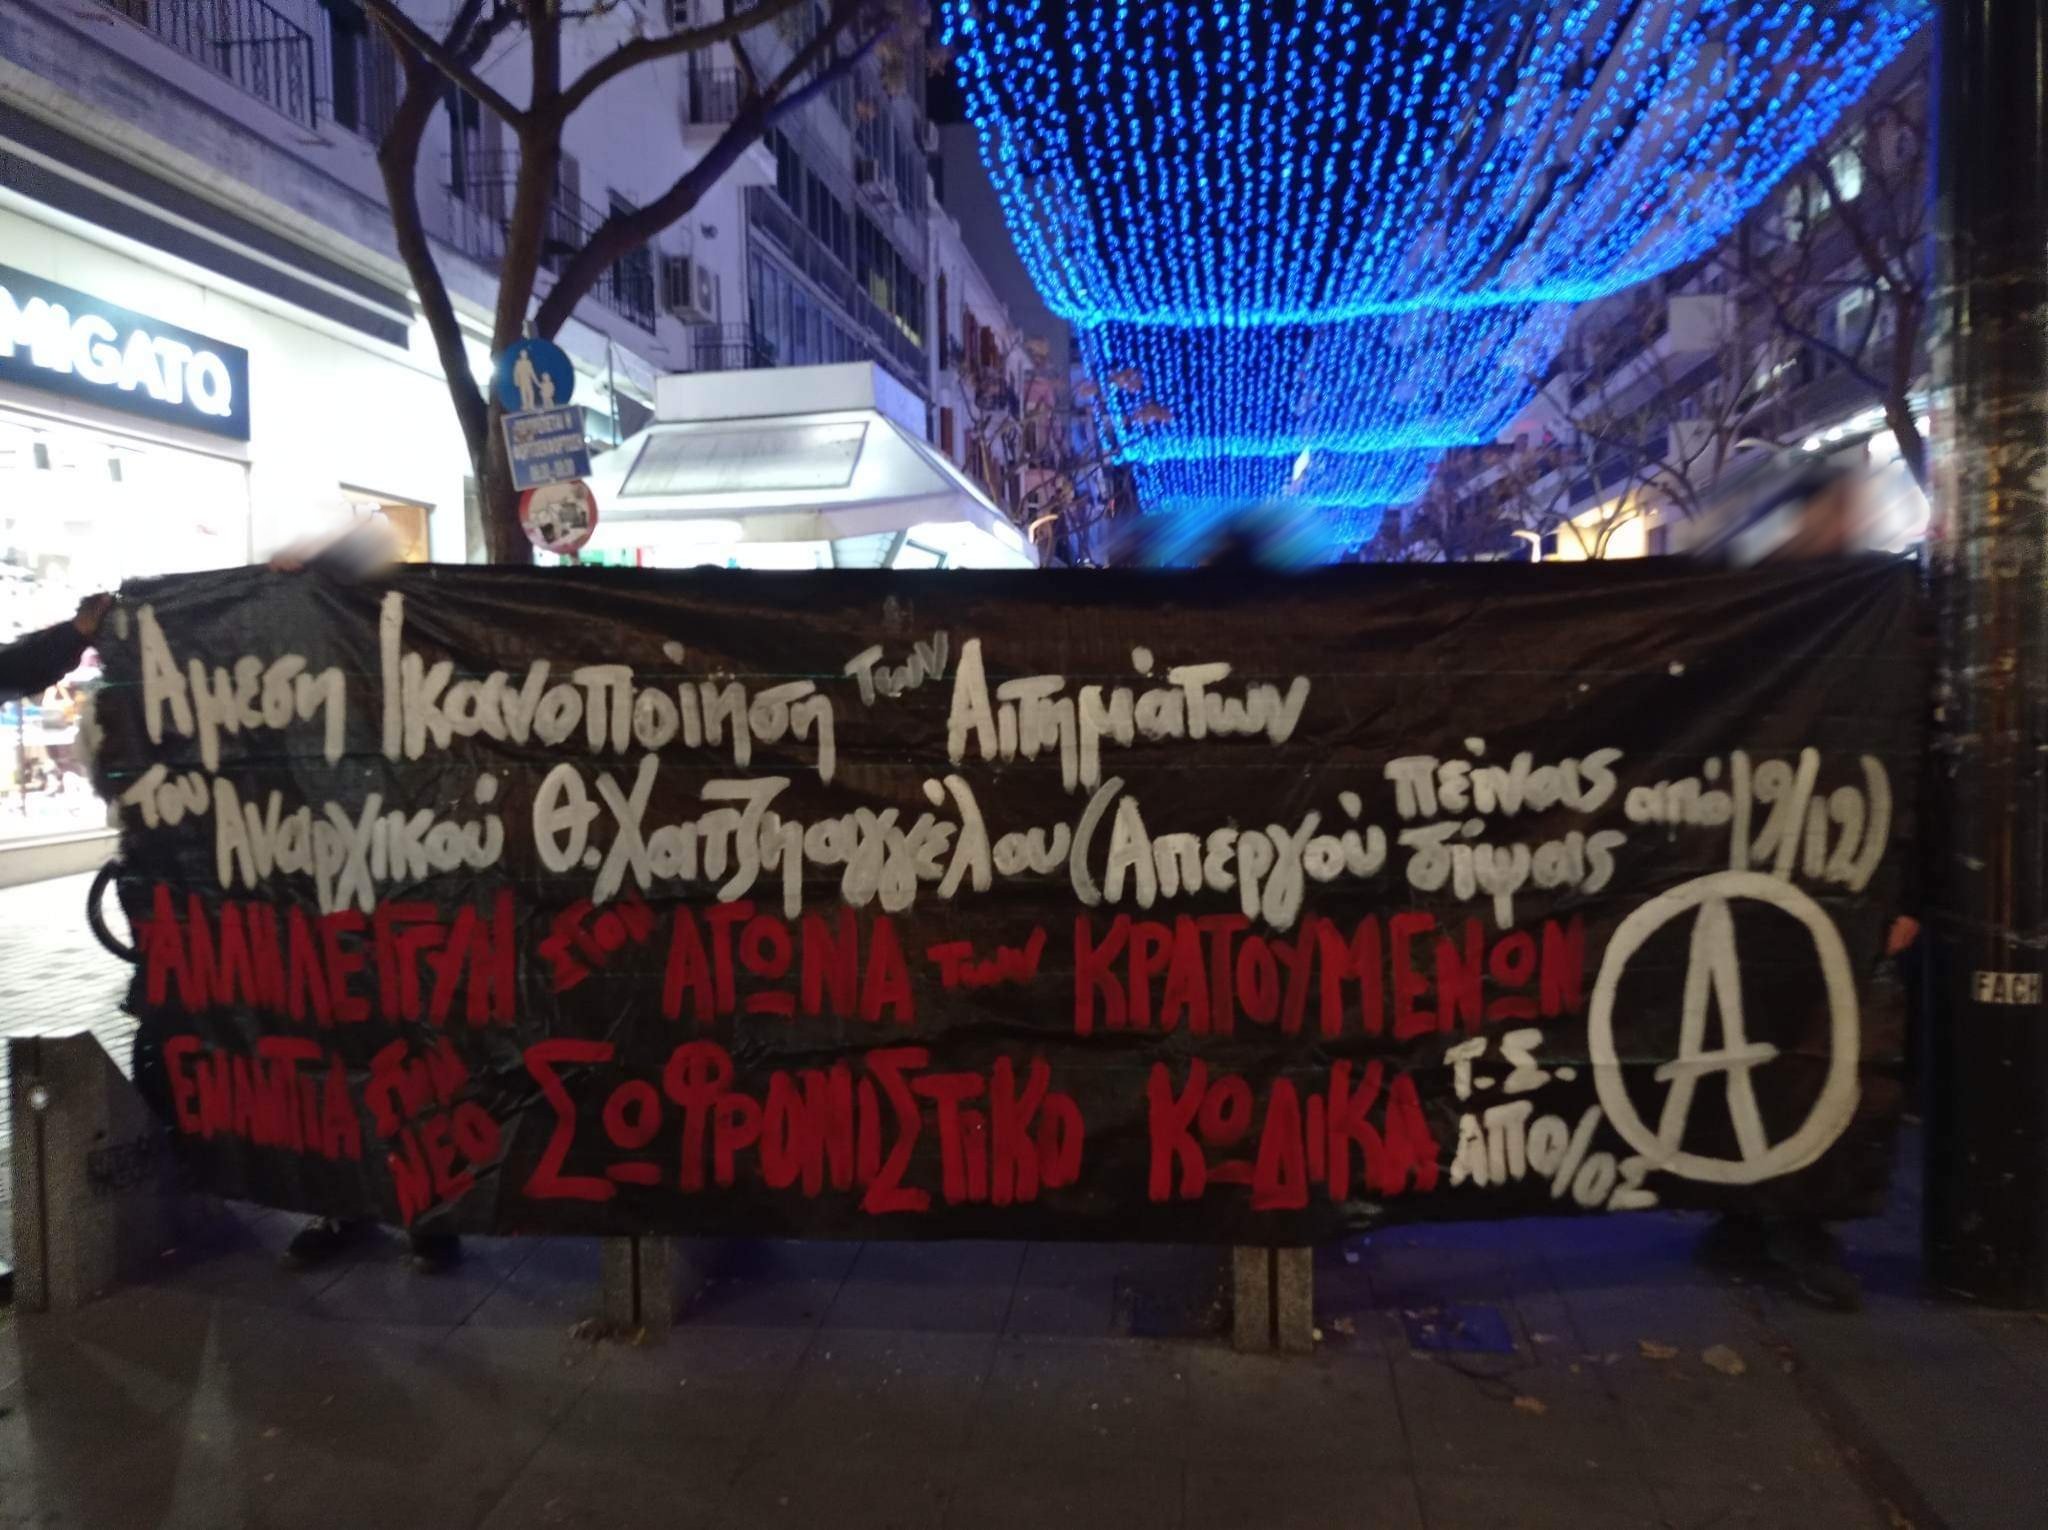 MIGATO
Άμεση Ικανοποίηση των Αιτημάτων
του Αναρχικού Θ. Χατζηαγγέλου (Απεργού πείνας δίψας από 19/12)
ΑΛΛΗΛΕΓΓΥΗ ΣΤΟΝ ΑΓΩΝΑ ΤΩΝ ΚΡΑΤΟΥΜΕΝΩΝ
ΕΝΑΝΤΙΑ ΣΤΟΝ ΝΕΟ ΣΩΦΡΟΝΙΣΤΙΚΟ ΚΩΔΙΚΑ
Τ.Σ.
ΑΠΟ/ΟΣ
A